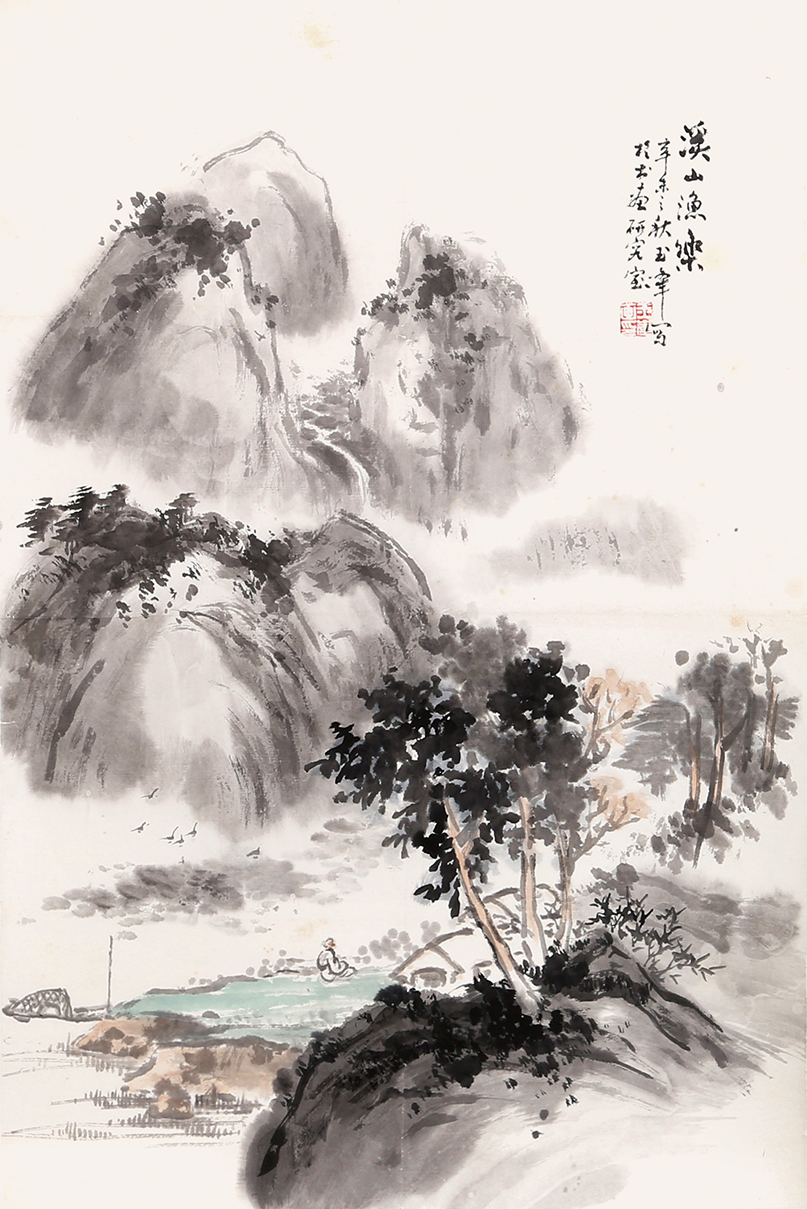 溪山漁樂
辛未之秋玉峯寫
於書画研究室